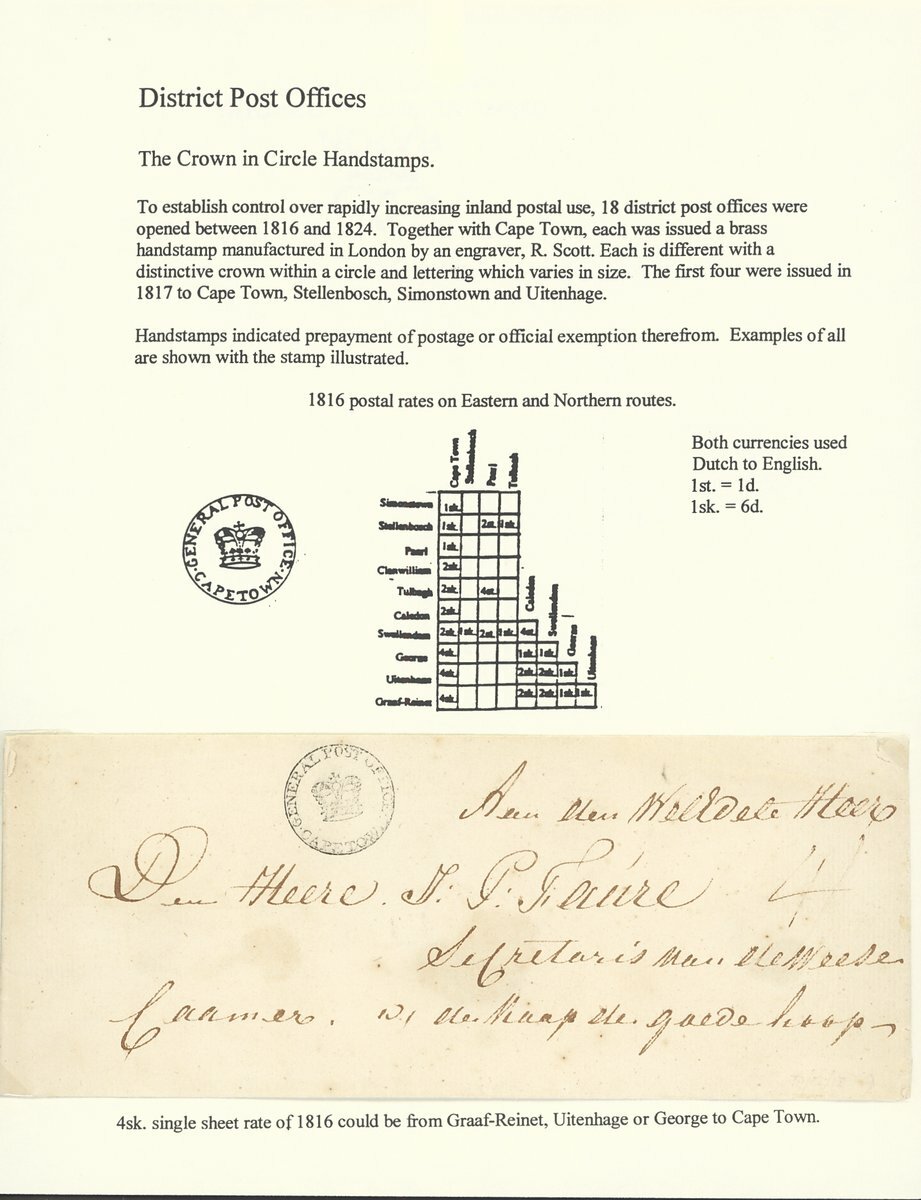 District Post Offices
The Crown in Circle Handstamps.
To establish control over rapidly increasing inland postal use, 18 district post offices were
opened between 1816 and 1824. Together with Cape Town, each was issued a brass
handstamp manufactured in London by an engraver, R. Scott. Each is different with a
distinctive crown within a circle and lettering which varies in size. The first four were issued in
1817 to Cape Town, Stellenbosch, Simonstown and Uitenhage.
Handstamps indicated prepayment of postage or official exemption therefrom. Examples of all
are shown with the stamp illustrated.
1816 postal rates on Eastern and Northern routes.
Both currencies used
Dutch to English.
1st. = 1d.
1sk. = 6d.
GENERAL POST OFFICE
CAPETOWN
Cape Town Stellenbosch Paarl Tulbagh
Simonstown 1sk.
Stellenbosch 1sk. 2st. 1sk.
Paarl 1sk.
Clanwilliam 2sk.
Tulbagh 2sk. 4st.
Caledon
Caledon 2sk.
Swellendam
Swellendam 2sk. 1sk. 2st. 1sk. 4st.
George
George 4sk. 1sk. 1sk.
Uitenhage
Uitenhage 4sk. 2sk. 2sk. 1sk.
Graaf-Reinet 4sk. 2sk. 2sk. 1sk. 1sk.
GENERAL POST OFFICE
CAPETOWN
Aan den WelEdele Heer
Den Heere J: P: Faure 4
Secretaris van de Weese
Caamer de Kaap de goede hoop
4sk. single sheet rate of 1816 could be from Graaf-Reinet, Uitenhage or George to Cape Town.